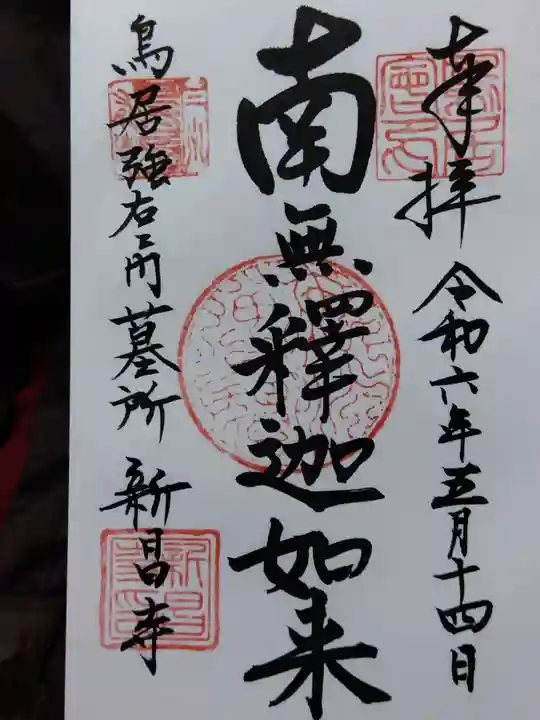 奉拝 令和六年五月十四日
南無釋迦如来
鳥居強右エ門墓所 新昌寺